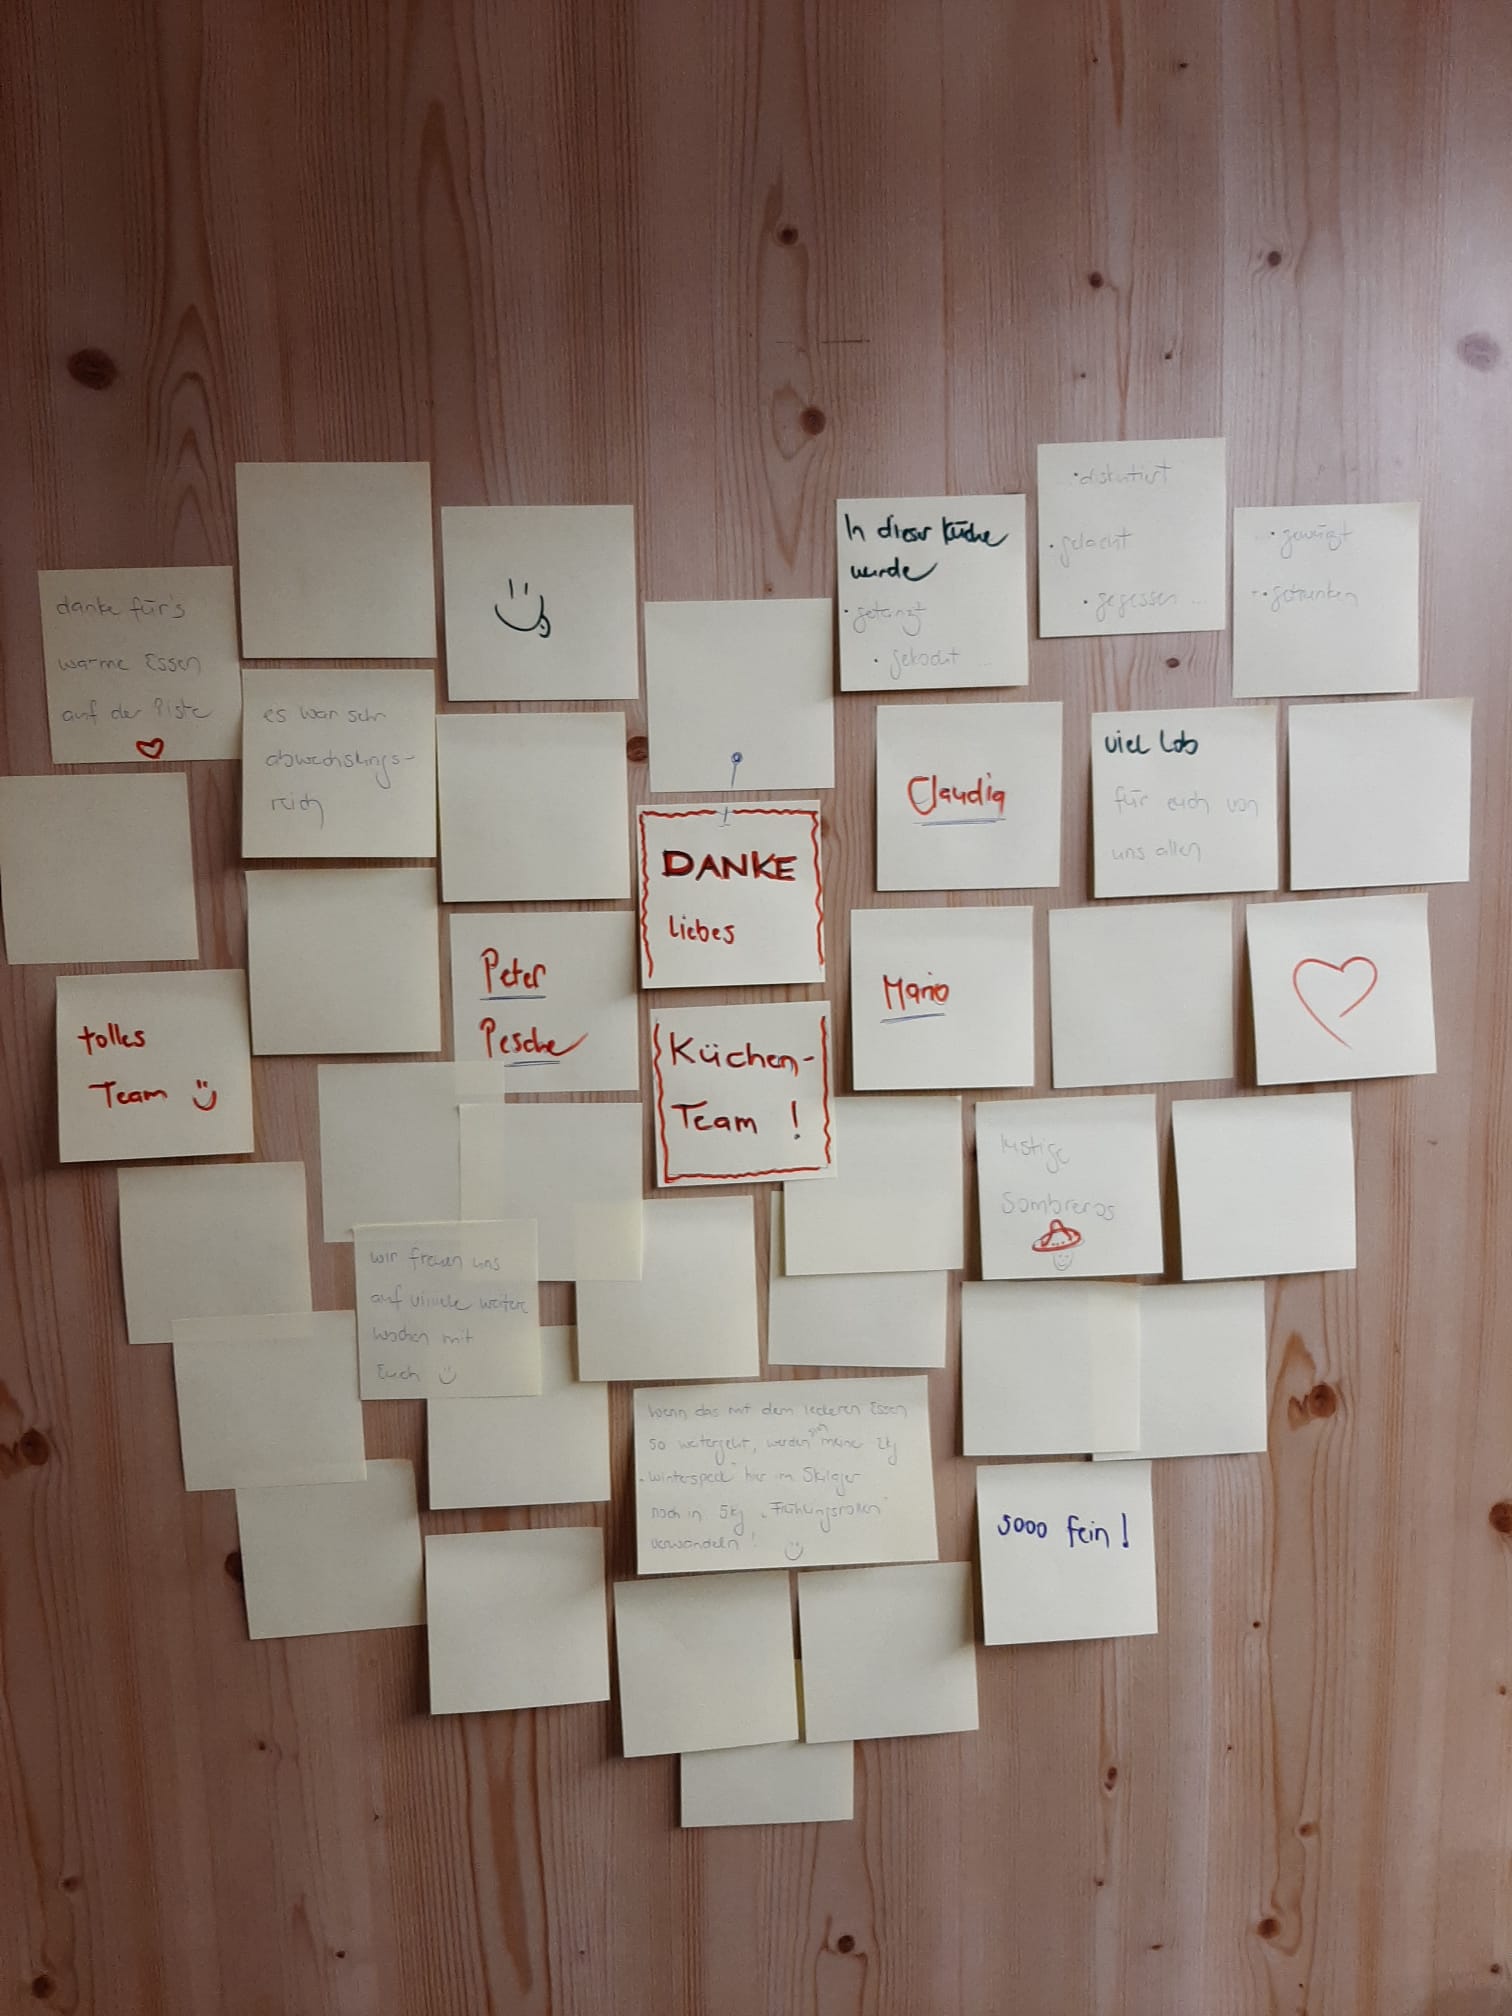 danke für's
warme Essen
auf der Piste
es war sehr
abwechslungs-
reich
In dieser Küche
wurde
• getanzt
• gekocht ...
• diskutiert
• gelacht
• gegessen ...
... • gewürzt
• getrunken
DANKE
liebes
Küchen-
Team !
Peter
Pesche
Claudia
Mario
viel Lob
für euch von
uns allen
tolles
Team
lustige
Sombreros
wir freuen uns
auf viiiele weitere
Wochen mit
Euch
Wenn das mit dem leckeren Essen
so weitergeht, werden sich meine 2kg
"Winterspeck" hier im Skilager
noch in 5kg "Frühlingsrollen"
verwandeln !
sooo fein !